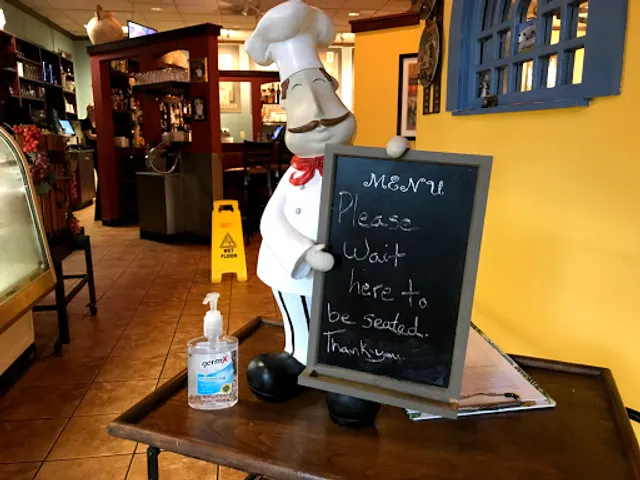 MENU
Please
Wait
here to
be seated.
Thank you...
WET
FLOOR
germX